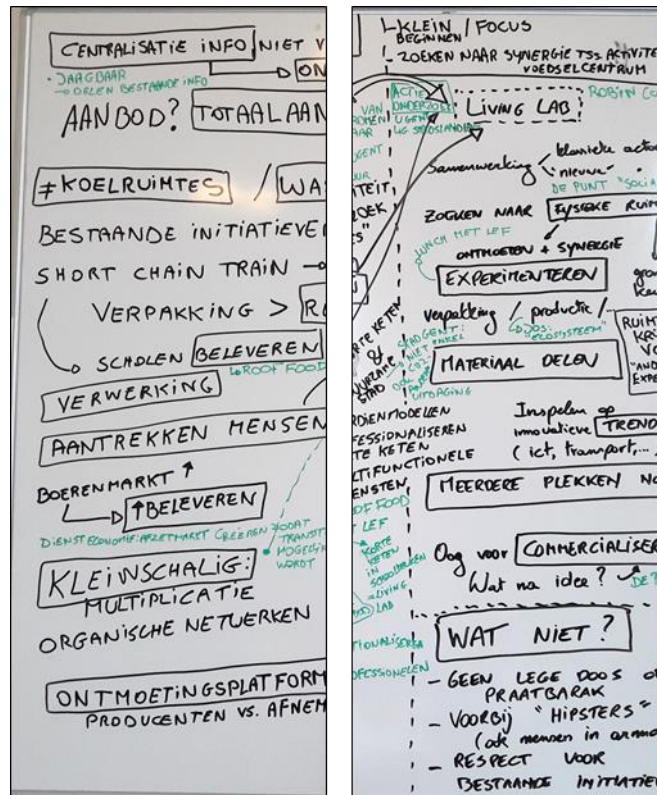 CENTRALISATIE INFO NIET V
ON
· JAAGBAAR
→ DELEN BESTAANDE INFO
AANBOD? TOTAALAAN
≠KOELRUIMTES / WA
BESTAANDE INITIATIEVE
SHORT CHAIN TRAIN
VERPAKKING > R
SCHOLEN BELEVEREN
ROOF FOOD
VERWERKING
AANTREKKEN MENSEN
BOERENMARKT ↑
↑BELEVEREN
DIENSTECONOMIE: AFZETMARKT CREËREN ZODAT
TRANSIT
MOGELIJK
WORDT
KLEINSCHALIG:
MULTIPLICATIE
ORGANISCHE NETWERKEN
ONTMOETINGSPLATFORM
PRODUCENTEN VS. AFNEM
KLEIN / FOCUS
BEGINNEN
- ZOEKEN NAAR SYNERGIE TSS ACTIVITE
VOEDSELCENTRUM
ACTIE
ONDERZOEK
UGENT
LIVING LAB
ROBIN CO
Samenwerking
klassieke acto
"nieuwe"
DE PUNT "SOCIA
ZOEKEN NAAR FYSIEKE RUIM
LUNCH MET LEF
ONTMOETEN + SYNERGIE
EXPERIMENTEREN
Verpakking / productie /
DOS:
"ECOSYSTEEM"
STADGENT:
NIET ENKEL
CO2
OOK
UITDAGING
MATERIAAL DELEN
RUIM
VO
"AND
EXPE
RTE KETEN
&
URZAME
STAD
RDIENMODELLEN
FESSIONALISEREN
TE KETEN
LTIFUNCTIONELE
ENSTEN
Inspelen op
innovatieve TREND
(ict, transport,...
OF FOOD
LEF
KORTE
KETEN
IN
=LIVING
LAB
MEERDERE PLEKKEN NO
Oog voor COMMERCIALISER
Wat na idee?
DE
TIONALISEREN
OFESSIONELEN
WAT NIET?
- GEEN LEGE DOOS O
PRAATBARAK
- VOORBIJ "HIPSTERS"
(ook mensen in armo
- RESPECT VOOR
BESTAANDE INITIATIEV